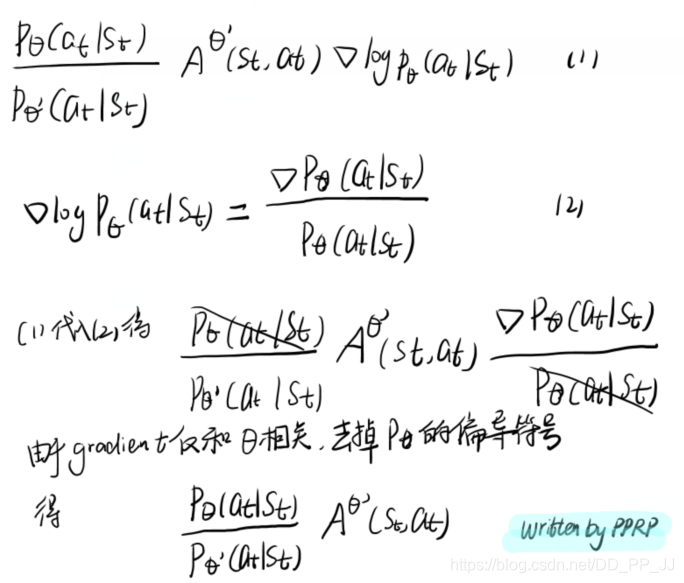 Pθ(at|st) / Pθ'(at|st) A^θ'(st,at) ∇log pθ(at|st) (1)
∇log Pθ(at|st) = ∇Pθ(at|st) / Pθ(at|st) (2)
(1)代入(2)得 Pθ(at|st) / Pθ'(at|st) A^θ'(st,at) ∇Pθ(at|st) / Pθ(at|st)
由于gradient仅和θ相关,去掉Pθ的偏导符号
得 Pθ(at|st) / Pθ'(at|st) A^θ'(st,at)
written by PPRP
https://blog.csdn.net/DD_PP_JJ